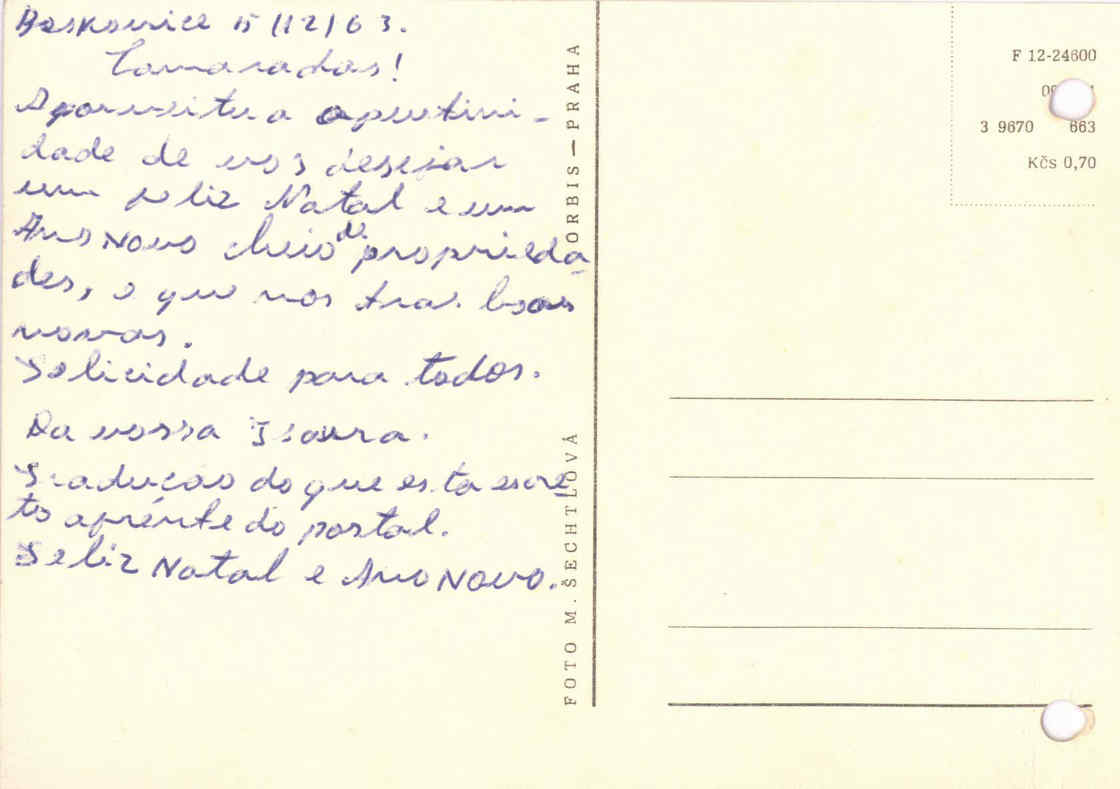 Boskovice 15/12/63.
Camaradas!
Aporveito a oportini-
dade de vos desejar
um feliz Natal e um
Ano Novo cheio de proprieda-
des, o que nos tra. boas
novas.
Felicidade para todos.
Da vossa Isaura.
Traducao do que esta escre
to a frente do postal.
Feliz Natal e Ano Novo.
FOTO M. ŠECHTLOVÁ ORBIS — PRAHA
F 12-24600
3 9670 663
Kčs 0,70